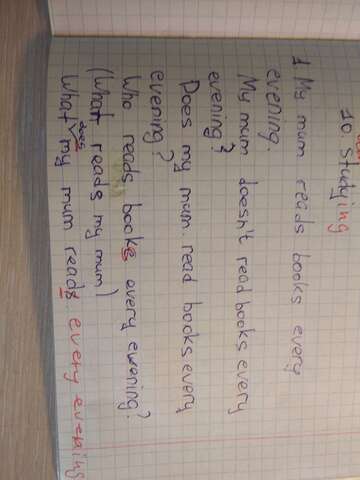 10 studying
1. My mum reads books every
evening
My mum doesn't read books every
evening?
Does my mum. read books every
evening?
Who reads books every evening?
(What reads my mum)
What does my mum reads. every evening